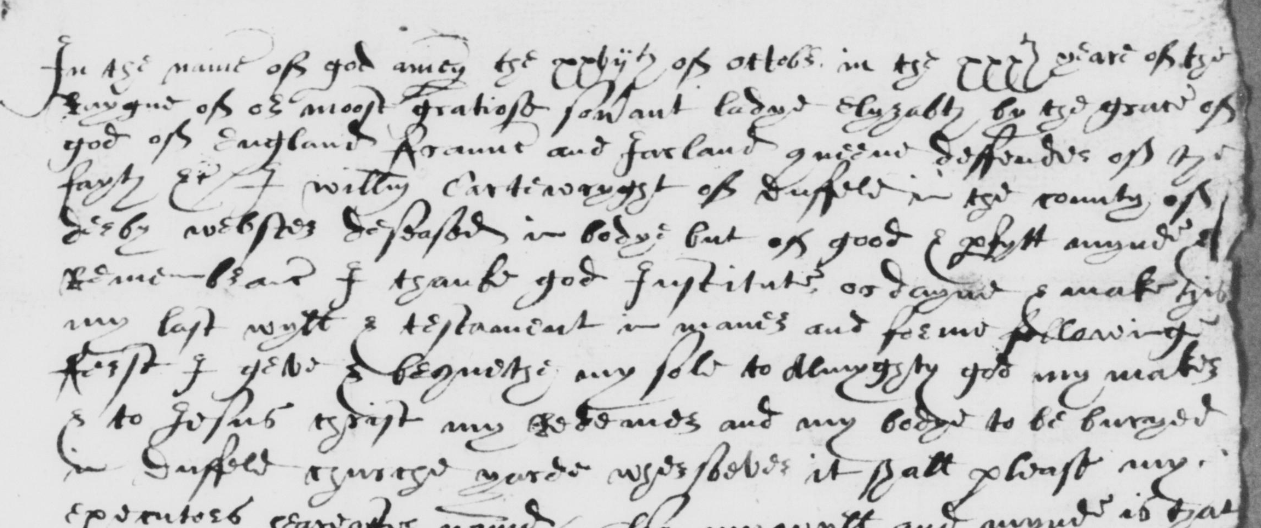 In the name of god amen the xxviijth of octobr in the xxxth yeare of the
Raygne of or moost gratiose soverant ladye elyzabth by the grace of
god of England Fraunce and Ireland queene deffender of the
fayth &c I willm Cartewryght of duffeld in the county of
derby webster deseased in bodye but of good & pfytt mynde &
Remembranc I thanke god Institute ordayne & make this
my last wyll & testament in maner and forme following
Ferst I geve & bequethe my sole to Almyghty god my maker
& to Jesus christ my Redemer and my bodye to be buryed
in duffeld churche yarde whersoever it shall please my
executors hereafter named my wyll and mynde is that